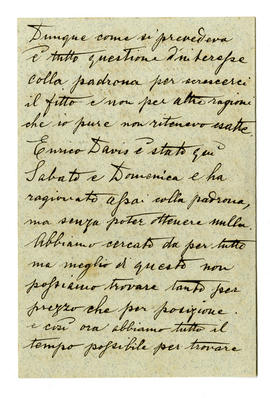 Dunque come si prevedeva
è tutto questione d'interesse
colla padrona per crescerci
il fitto e non per altre ragioni
che io pure non ritenevo esatte.
Enrico Davis è stato quì
Sabato e Domenica e ha
ragionato assai colla padrona,
ma senza poter ottenere nulla.
Abbiamo cercato da per tutto
ma meglio di questo non
possiamo trovare tanto per
prezzo che per posizione.
e così ora abbiamo tutto il
tempo possibile per trovare